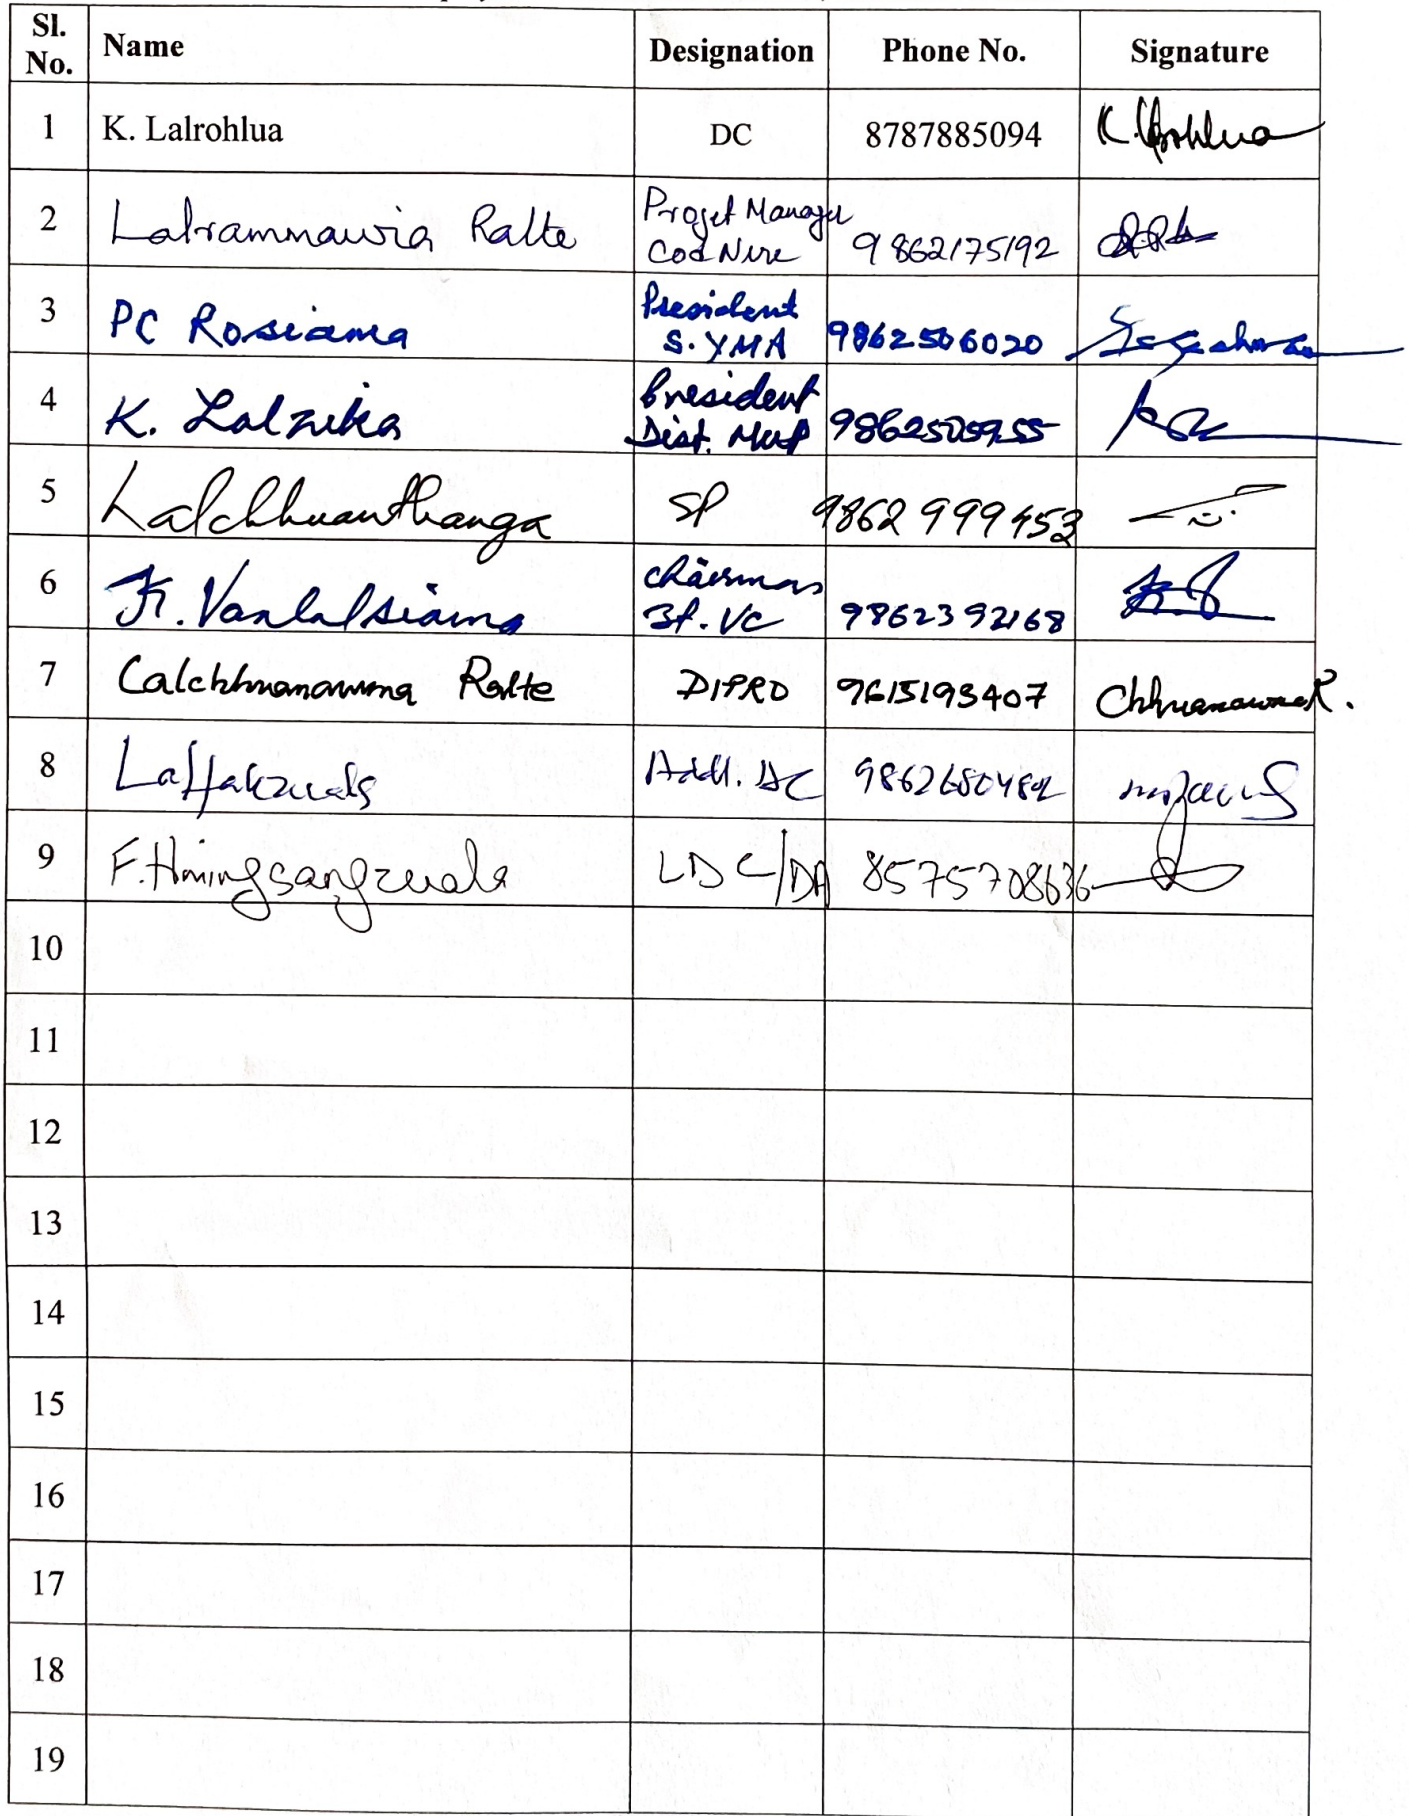 Sl. No. Name Designation Phone No. Signature
1 K. Lalrohlua DC 8787885094 K. Lalrohlua
2 Lalrammawia Ralte Projet Manager 9862175192
3 PC Rosiama President S. YMA 9862506020
4 K. Lalzika President Dist. MUP 9862505955
5 Lalchhuanthanga SP 9862999453
6 K. Vanlalsiama Chairman VC 9862392168
7 Lalchhuanawma Ralte DIPRO 9615193407 Chhuanawma R.
8 Addl. DC
9 F. Hmingsangzuala LDC/DA 8575708636
10
11
12
13
14
15
16
17
18
19